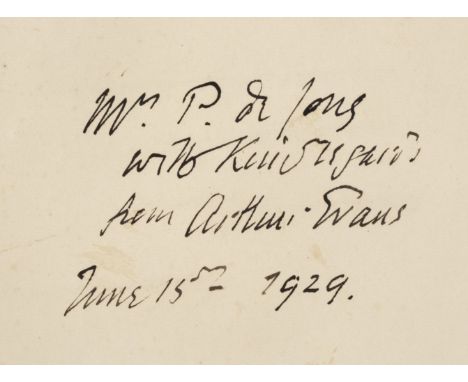 Mrs. P. de Jong
with Kind regards
from Arthur Evans
June 15th 1929.